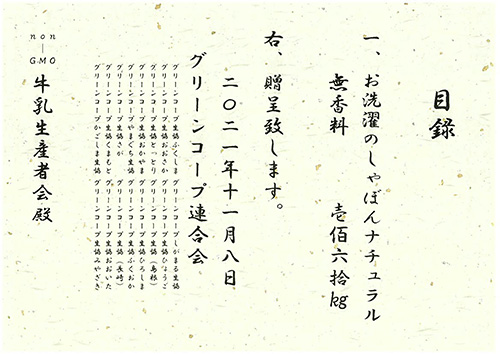 目録
一、お洗濯のしゃぼんナチュラル
無香料 壱佰六拾kg
右、贈呈致します。
二〇二一年十一月八日
グリーンコープ連合会
グリーンコープ生協ふくしま グリーンコープしがまる生協
グリーンコープ生協おおさか グリーンコープ生協ひょうご
グリーンコープ生協とっとり グリーンコープ生協（島根）
グリーンコープ生協おかやま グリーンコープ生協ひろしま
グリーンコープやまぐち生協 グリーンコープ生協ふくおか
グリーンコープ生協さが グリーンコープ生協（長崎）
グリーンコープ生協くまもと グリーンコープ生協おおいた
グリーンコープかごしま生協 グリーンコープ生協みやざき
non-GMO 牛乳生産者会殿